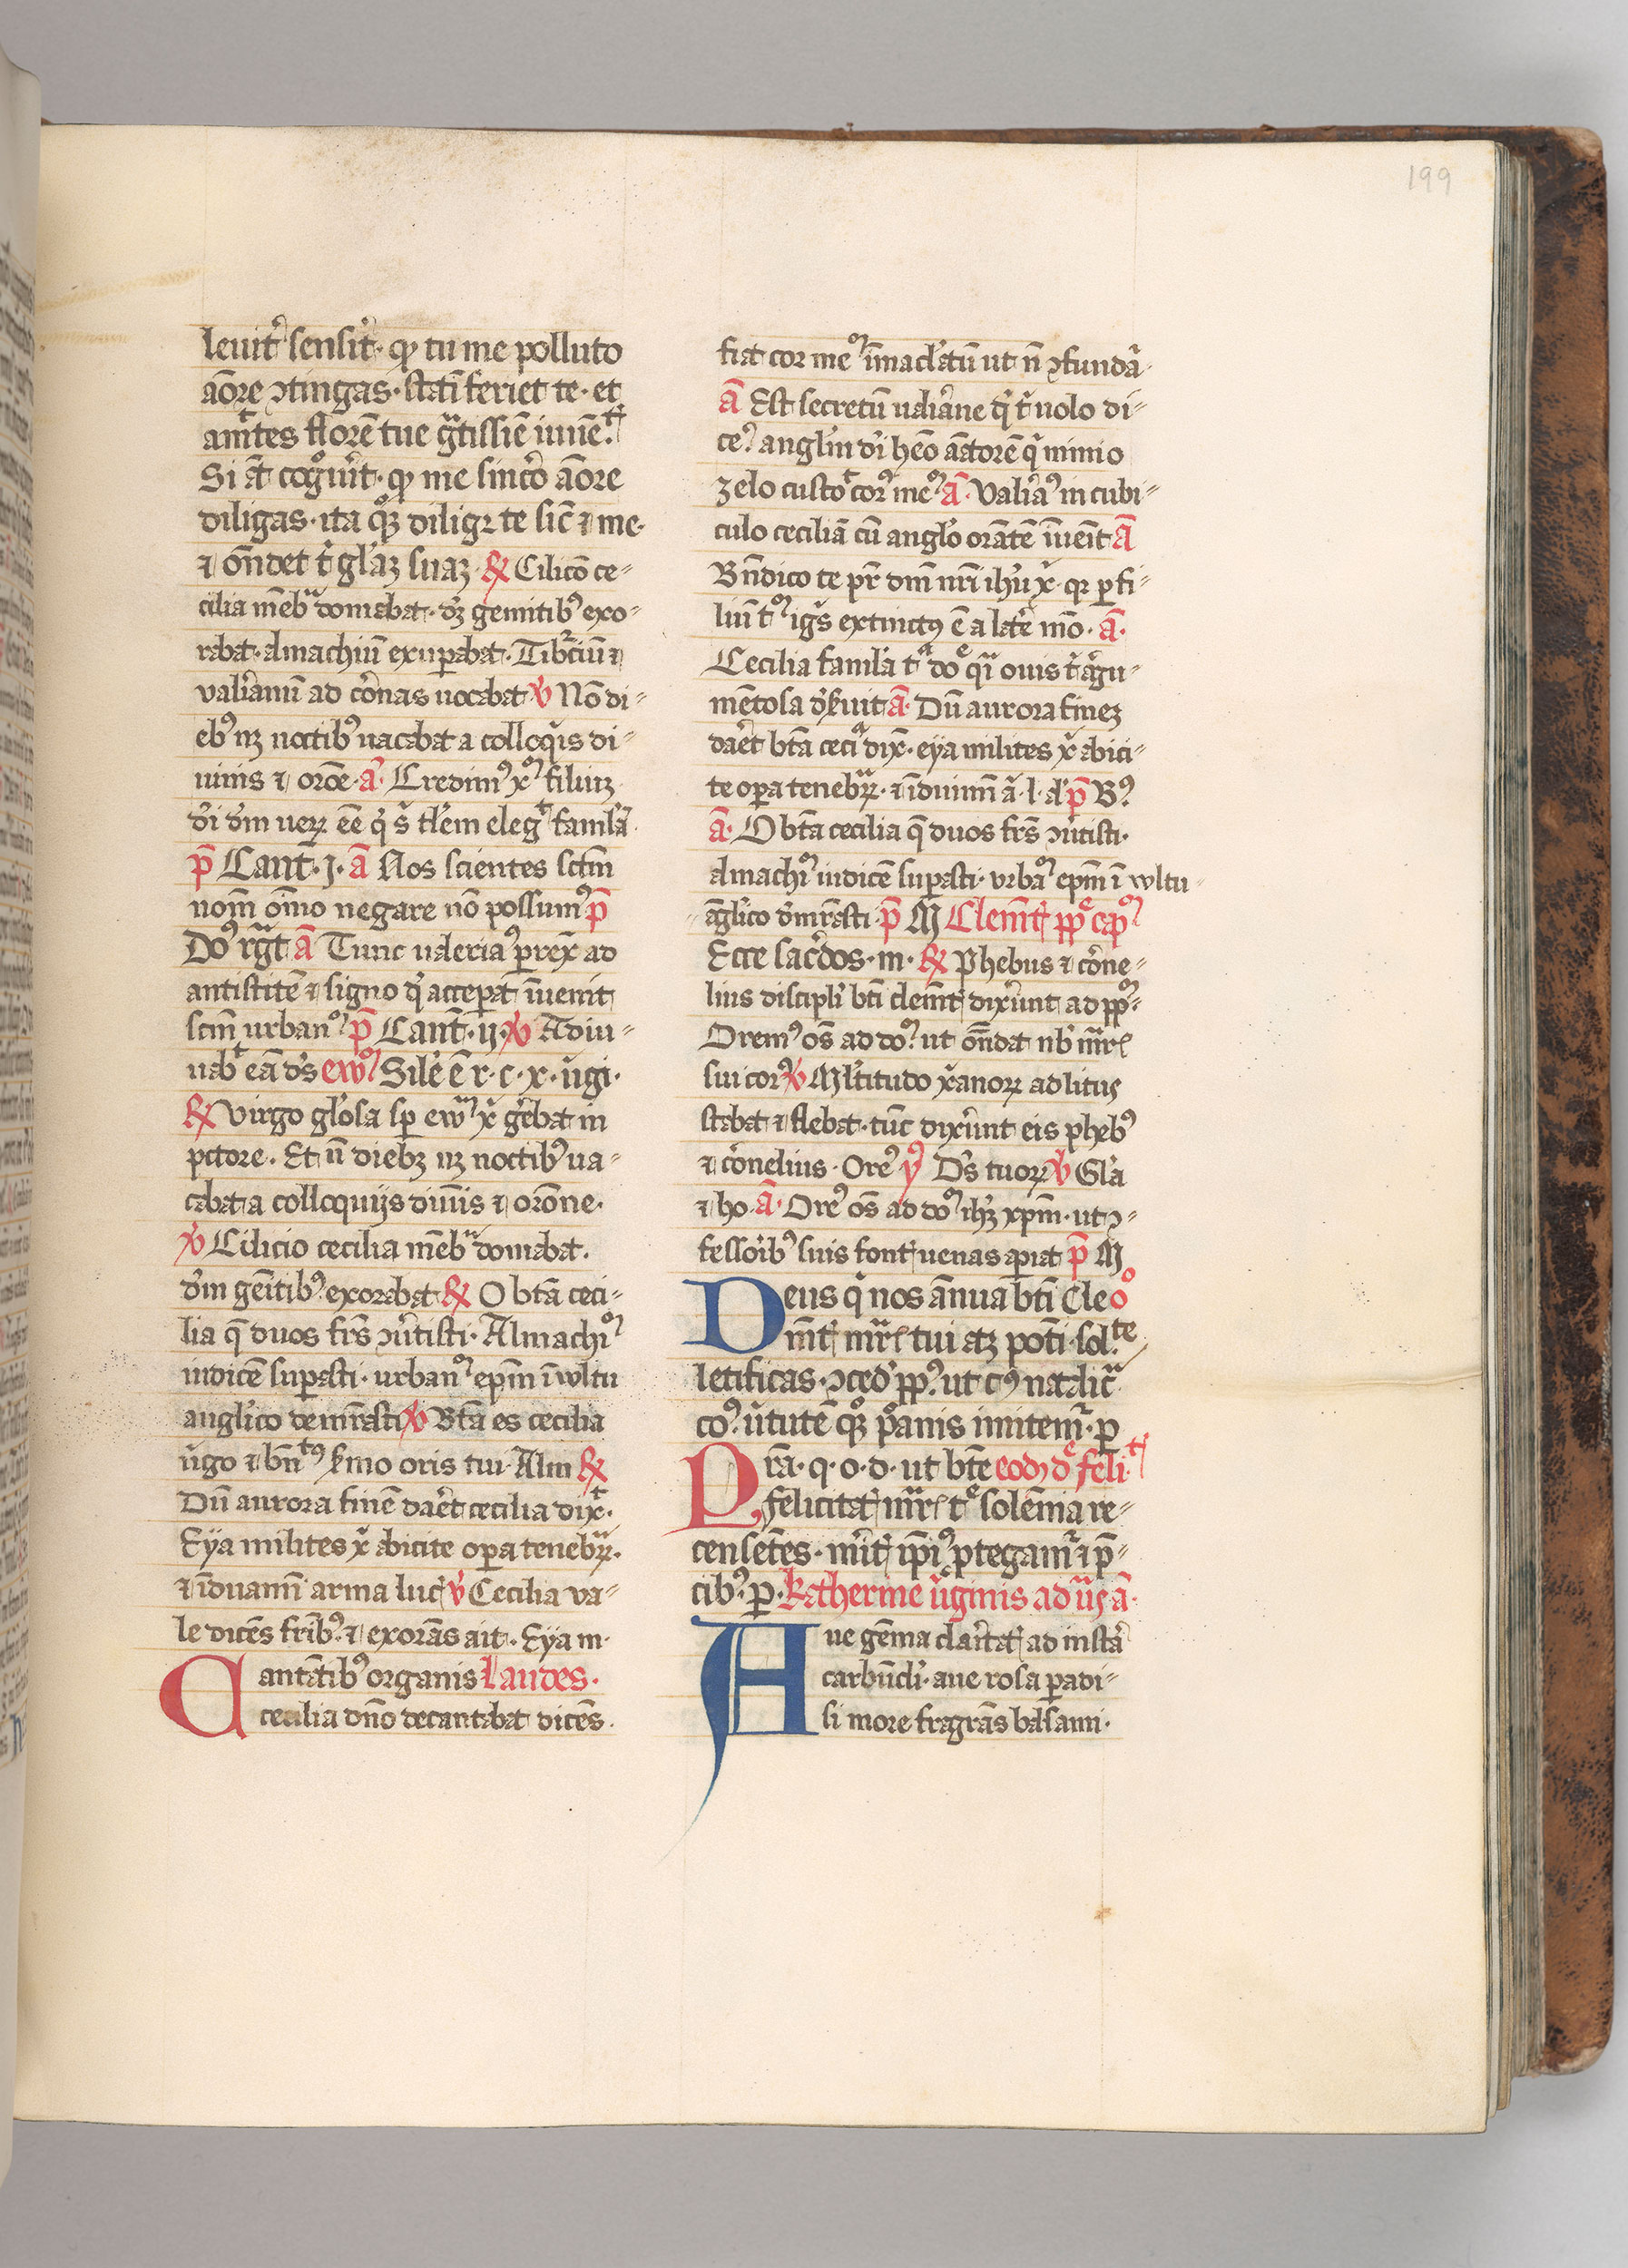 199
leuit᷑ sensit᷑· qꝫ tu me polluto
aōre ↄtingas· statī feriet te· et
amͭtes florē tue gͣtissiē iuuēᵗꝭ
Si āt cogͦuit᷑· qꝫ me sincͦo aōre
diligas· ita qͦꝫ diligꝫ te sic̄ ⁊ me·
⁊ on̄det t͛ gl᷑aꝫ suaꝫ· ℟ Cilic̄o ce-
cilia mēbͣ domabat· dꝫ gemitibꝰ exo-
rabat· almachiū exuꝑabat· Tib͛ciū ⁊
valiᷓanū ad cōnas uocabat ℣ Nō di-
ebꝰ nꝫ noctibꝰ uacabat a colloqͥis di-
uinis ⁊ or̄oe· a᷑· Credimꝰ xͫ filiuꝫ
d͛i d͛m ueꝝ ēē qͥ s͛ tl᷑em elegͭ famlā
p̄ Cant̄· j· ā Nos scientes sctm̄
nom̄ ōmo negare nō possumꝰ p̄
Doꝰ rgͣt ā Tunc ualerianꝰ ꝑrex᷑ ad
antistitē ⁊ signo qͦ acceꝑat īuenit
scm̄ urbanͫ p̄ Cant̄· ij· ℣ Adiu-
uabͭ eā d͛s ewͫ Sil᷑e ē r· c· x· u͛gi·
℟ Virgo gl᷑osa sꝑ ewͫ x͛ g͛ebat in
pctore· Et n̄ diebꝫ nꝫ noctibꝰ ua-
cabat a colloquijs diuīs ⁊ orōne·
℣ Cilicio cecilia mēbͣ domabat·
d͛m gēitibꝰ exorabat ℟ O bt̄a ceci-
lia q̄ duos fr̄s ↄu͛tisti· Almachͫ
iudicē suꝑasti· urbanͫ ep̄m ī wltu
angl᷑ico demr̄asti ℣ Bt̄a es cecilia
u͛go ⁊ bn̄ᵗꝰ ẜmo oris tui· Alm ℟
Dū aurora finē daret᷑ cecilia dixͭ·
Eya milites x͛ abicite oꝑa tenebͣꝝ·
⁊ īduam̄ arma lucꝭ ℣ Cecilia va-
le dicēs frībꝰ· ⁊ exorās ait· Eya m·
Cantātibꝰ organis Laudes·
cecilia dn̄o decantabat dicēs·
fiat cor meͫ īmacl᷑atū ut n̄ ↄfundar᷑·
ā Est secretū ualiᷓane qͦ t͛ uolo di-
ceꝰ angl᷑m d͛i hēo aātorē qͥ nimio
zelo custoͭ corꝰ meͫ ā· Valiᷓaꝰ in cubi-
culo ceciliā cū anglo᷑ orātē īuēit ā
Bn̄dico te pr̄ dn̄i nr̄i ih᷑u x͛· qꝫ ꝑ fi-
liū tͫ igͥs extinctꝰ ē a lat͛e mō· ā·
Cecilia famla᷑ tͣ doͤ qͣi ouis t͛ aͬgu-
mētosa d͛ẜuit ā· Dū aurora fineꝫ
daret᷑ bt̄a ceciͣ dix᷑· eya milites x͛ abici-
te oꝑa tenebͣꝝ· ⁊ īduim̄ a͛· l· al᷑ p̄ Bꝰ
ā· O bt̄a cecilia q̄ duos frs̄ ↄu͛tisti·
almachͫ iudicē suꝑasti· vrbaͫ ep̄m ī wltu
āgl᷑ico dm̄rāsti p̄ M Clemēt̄ꝭ ppͤ capͫ
Ecce sac͛dos· m· ℟ Phebus ⁊ cōne-
lius discipl᷑i bt̄i clemēt̄ꝭ dixer᷑unt ad ppͫ·
Oremꝰ ōs ad doͫ ut on̄dat nb᷑ mͬrꝭ
sui corꝰ ℣ Ml᷑titudo x͛anoꝝ ad litus
stabat ⁊ flebat· tūc dixer᷑unt eis phebꝰ
⁊ cōnelius· Oreꝰ ℣ D͛s tuoꝝ ℣ Gl᷑a
⁊ ho· ā· Oreꝰ ōs ad doͫ ih᷑ꝫ xp̄m· ut ↄ-
fessoribꝰ suis fontꝭ uenas aꝑiat p̄ M
Deus qͥ nos ānua bt̄i Cleͦ
mēt̄ꝭ mͬrꝭ tui atꝫ pōt̄i· solᵗᵉ
letificas· ↄced᷑ ppꝰ· ut cꝰ natalic͛·
coꝰ u͛tutē qͦꝫ pͣanis imitem᷑· ꝑ
Prā· q· o· d· ut bt̄e eodꝫ dͤ feliᵗꝭ
felicitatꝭ mͬrꝭ tͤ solēnia re-
censētes· m͛itꝭ ip̄iꝰ ꝓtegam᷑ ⁊ p̄-
cibꝰ· ꝑ· Katherine u͛ginis ad u͛ꝭ ā·
Aue gēma clar᷑itatꝭ ad instar᷑
carbūcl᷑i· aue rosa ꝑadi-
si more fragrās balsami·